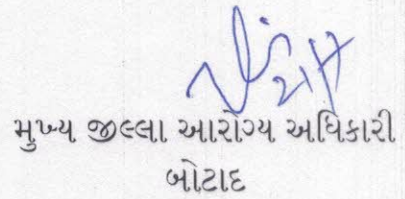 મુખ્ય જીલ્લા આરોગ્ય અધિકારી
બોટાદ